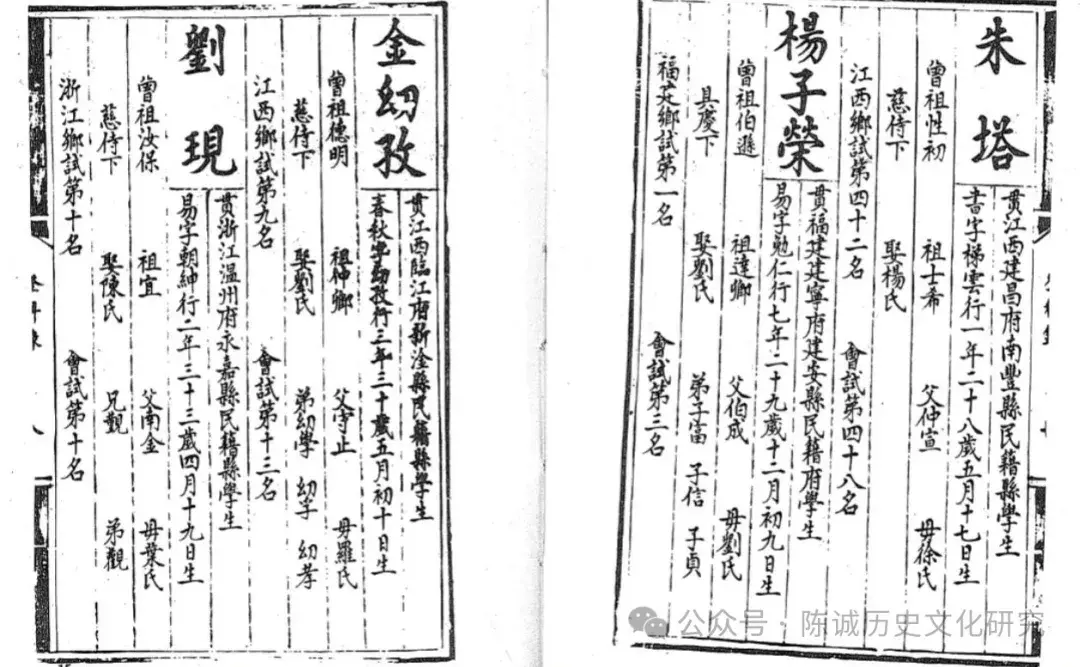 朱塔
貫江西建昌府南豐縣民籍縣學生
書字梯雲行一年二十八歲五月十七日生
曾祖性初 祖士希 父仲宣 母徐氏
慈侍下 娶楊氏
江西鄉試第四十二名 會試第四十八名
楊子榮
貫福建建寧府建安縣民籍府學生
易字勉仁行七年二十九歲十二月初九日生
曾祖伯遜 祖達卿 父伯成 母劉氏
具慶下 娶劉氏 弟子富 子信 子貞
福建鄉試第一名 會試第三名
金幼孜
貫江西臨江府新淦縣民籍縣學生
春秋字幼孜行三年三十歲五月初十日生
曾祖德明 祖仲卿 父守止 母羅氏
慈侍下 娶劉氏 弟幼學 幼孚 幼孝
江西鄉試第九名 會試第十三名
劉現
貫浙江温州府永嘉縣民籍縣學生
易字朝紳行二年三十三歲四月十九日生
曾祖汝保 祖宜 父南金 母葉氏
慈侍下 娶陳氏 兄觀 弟觀
浙江鄉試第十名 會試第十名
公众号·陈诚历史文化研究